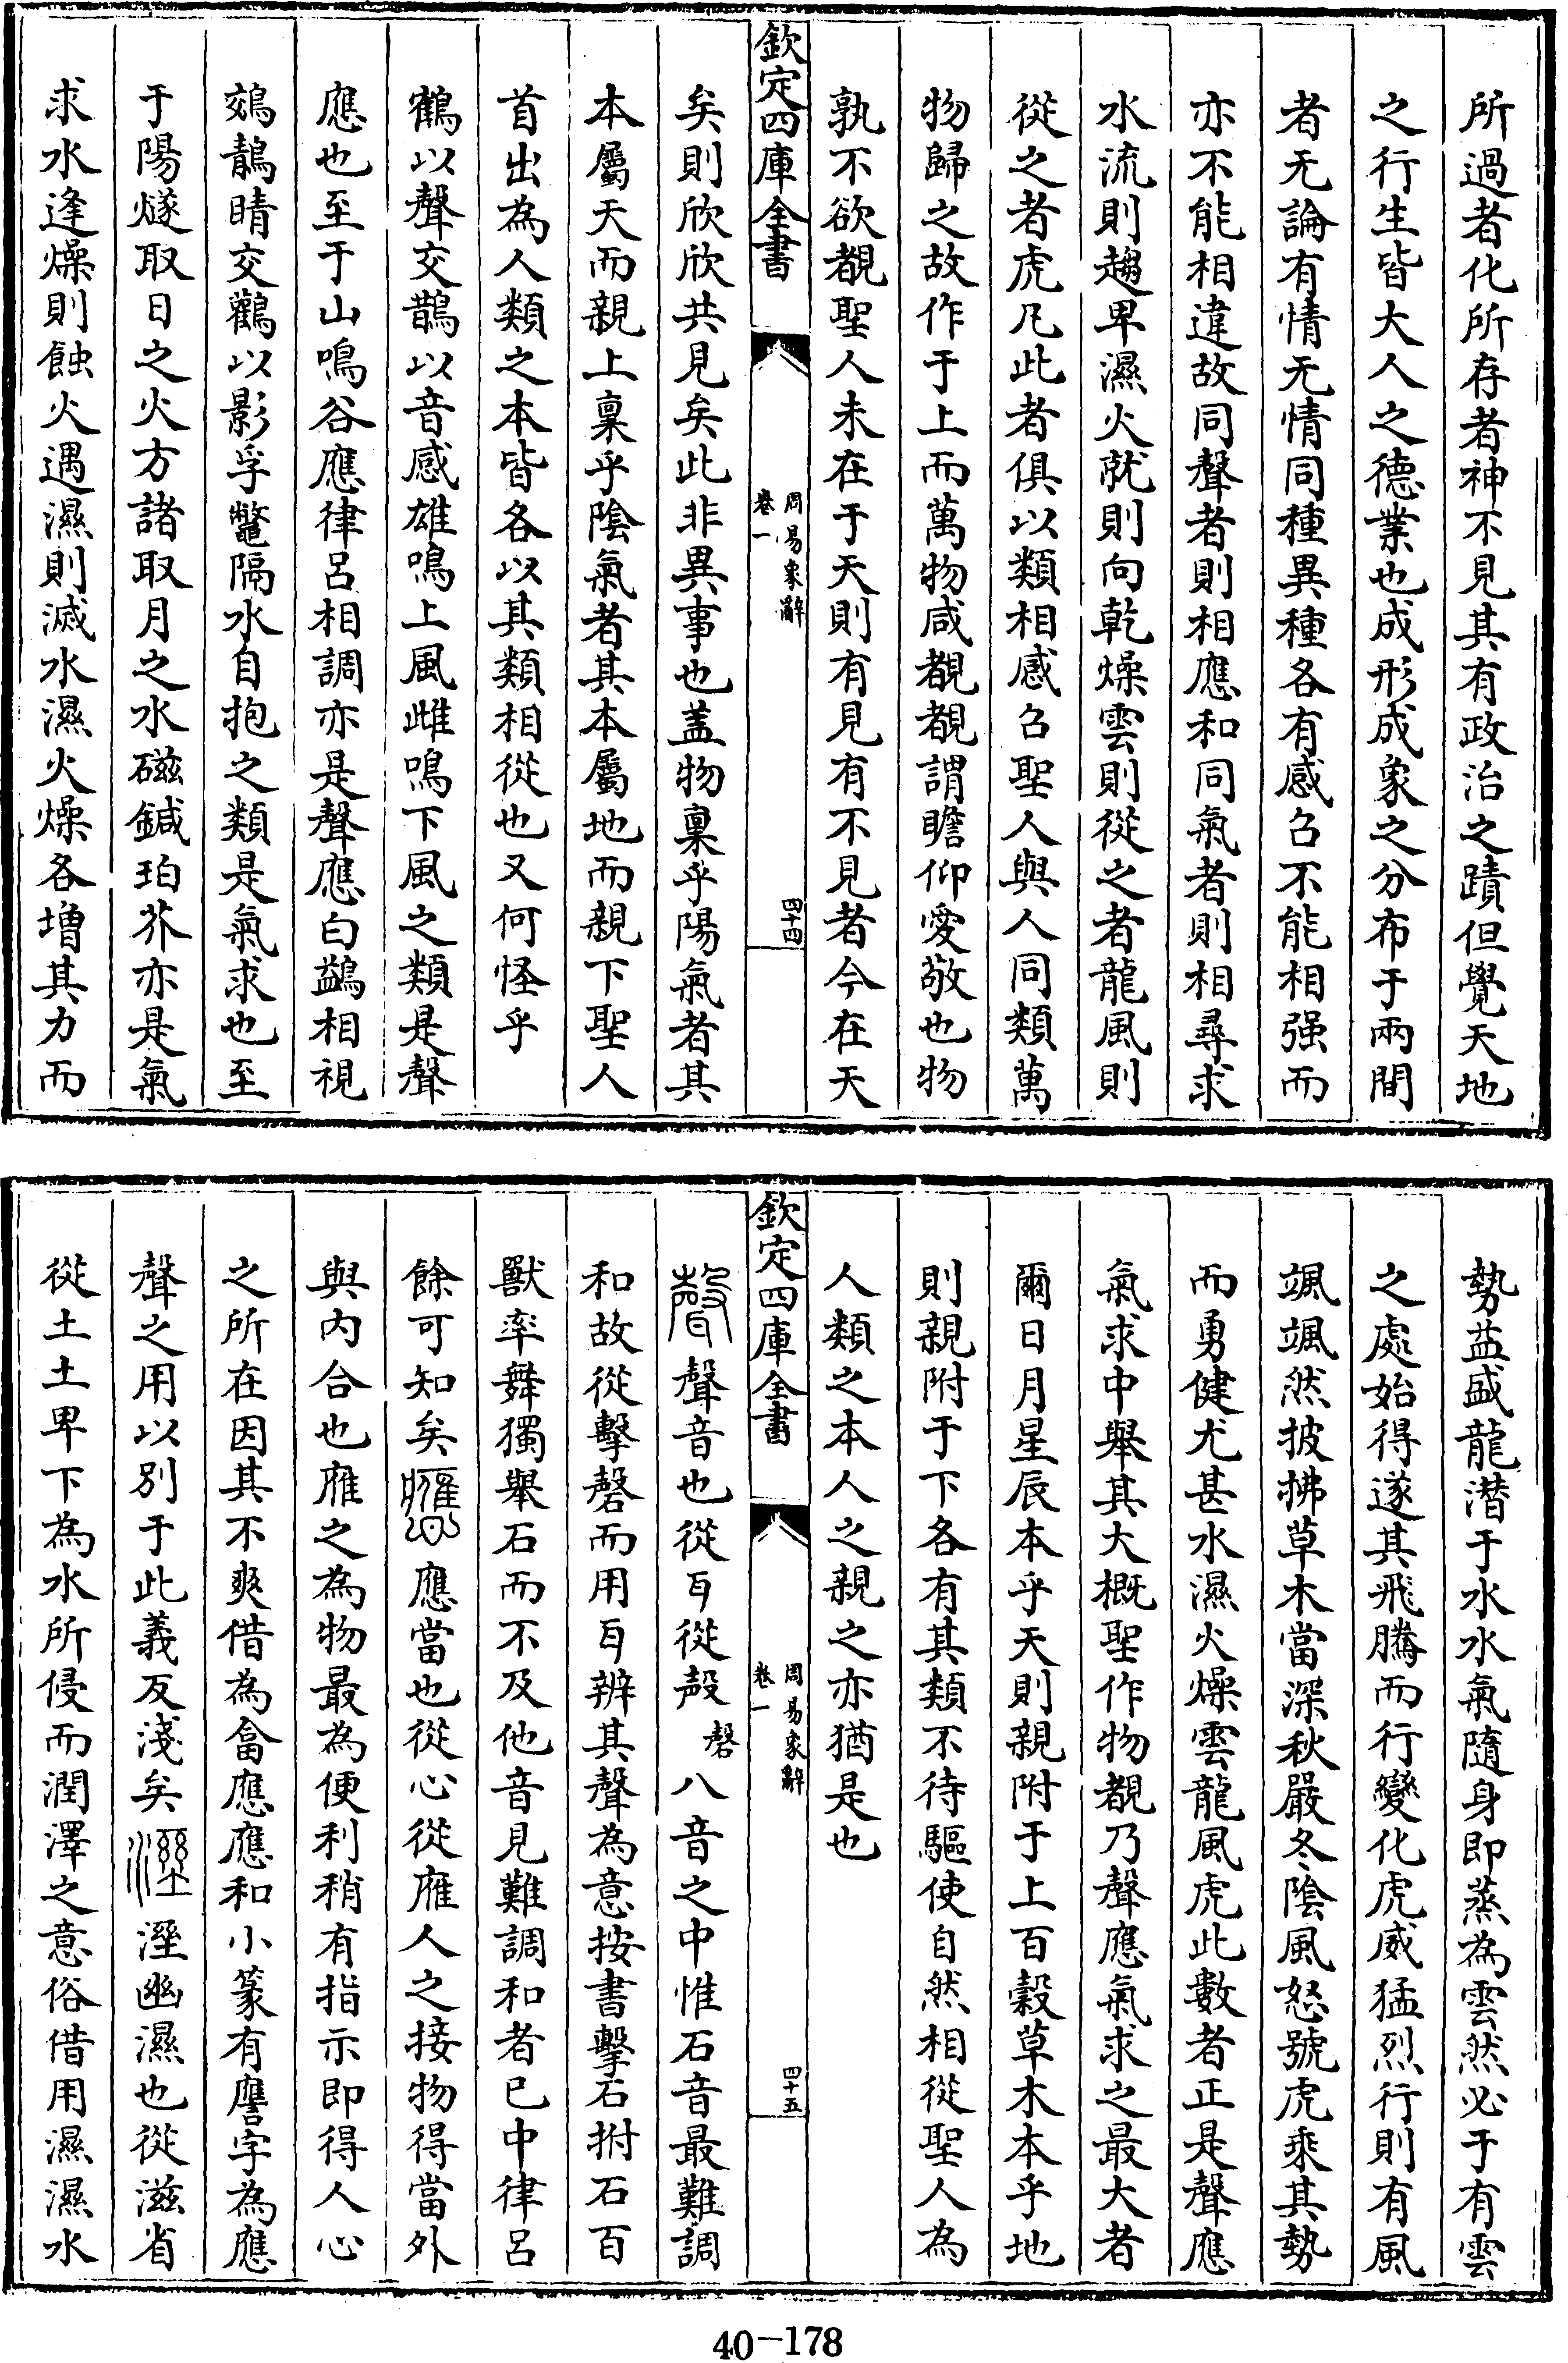 所過者化所存者神不見其有政治之蹟但覺天地
之行生皆大人之德業也成形成象之分布于兩間
者无論有情无情同種異種各有感召不能相强而
亦不能相違故同聲者則相應和同氣者則相尋求
水流則趨卑濕火就則向乾燥雲則從之者龍風則
從之者虎凡此者俱以類相感召聖人與人同類萬
物歸之故作于上而萬物咸覩覩謂瞻仰愛敬也物
孰不欲覩聖人未在于天則有見有不見者今在天
欽定四庫全書
周易象辭
卷一
四十四
矣則欣欣共見矣此非異事也盖物稟乎陽氣者其
本屬天而親上稟乎陰氣者其本屬地而親下聖人
首出為人類之本皆各以其類相從也又何怪乎
鶴以聲交鵲以音感雄鳴上風雌鳴下風之類是聲
應也至于山鳴谷應律呂相調亦是聲應白鷁相視
鵁鶄睛交鸛以影孚鼈隔水自抱之類是氣求也至
于陽燧取日之火方諸取月之水磁鍼珀芥亦是氣
求水逢燥則蝕火遇濕則滅水濕火燥各增其力而
勢益盛龍潛于水水氣隨身即蒸為雲然必于有雲
之處始得遂其飛騰而行變化虎威猛烈行則有風
颯颯然披拂草木當深秋嚴冬陰風怒號虎乘其勢
而勇健尤甚水濕火燥雲龍風虎此數者正是聲應
氣求中舉其大概聖作物覩乃聲應氣求之最大者
爾日月星辰本乎天則親附于上百穀草木本乎地
則親附于下各有其類不待驅使自然相從聖人為
人類之本人之親之亦猶是也
欽定四庫全書
周易象辭
卷一
四十五
聲音也從耳從殸磬八音之中惟石音最難調
和故從擊磬而用耳辨其聲為意按書擊石拊石百
獸率舞獨舉石而不及他音見難調和者已中律呂
餘可知矣應當也從心從䧹人之接物得當外
與內合也䧹之為物最為便利稍有指示即得人心
之所在因其不爽借為畣應應和小篆有譍字為應
聲之用以別于此義反淺矣溼幽濕也從滋省
從土土卑下為水所侵而潤澤之意俗借用濕濕水
40-178